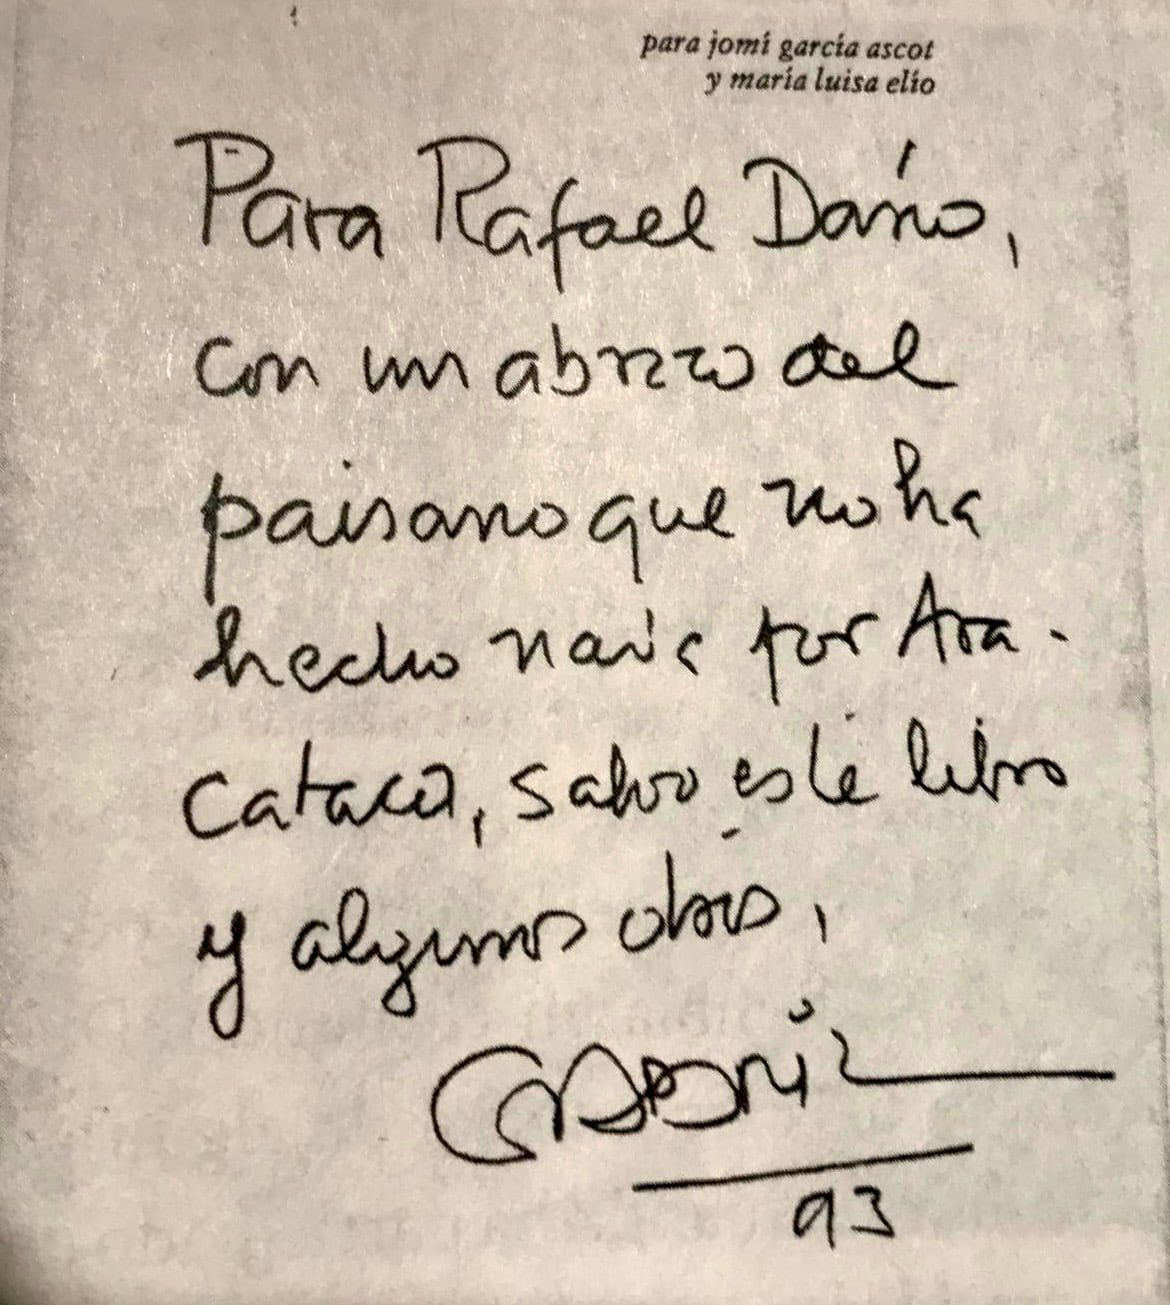 para jomí garcía ascot
y maría luisa elío
Para Rafael Darío,
con un abrazo del
paisano que no ha
hecho nada por Ara-
cataca, salvo este libro
y algunos otros,
Gabriel
93